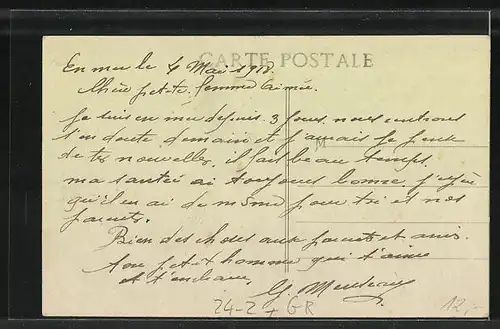 CARTE POSTALE
En mer le 4 Mai 1918.
Chère petite femme aimée.
Je suis en mer depuis 3 jours. nous rentrons
sen doute demain et j'aurais
de tes nouvelles, il fais beau temps.
ma santée ai toujours bonne, j'espère
qu'il en ai de même pour toi et nos
parents.
Bien des choses aux parents et amis.
Ton petit homme qui t'aime
et t'embrasse.
24-2 GR
12,-